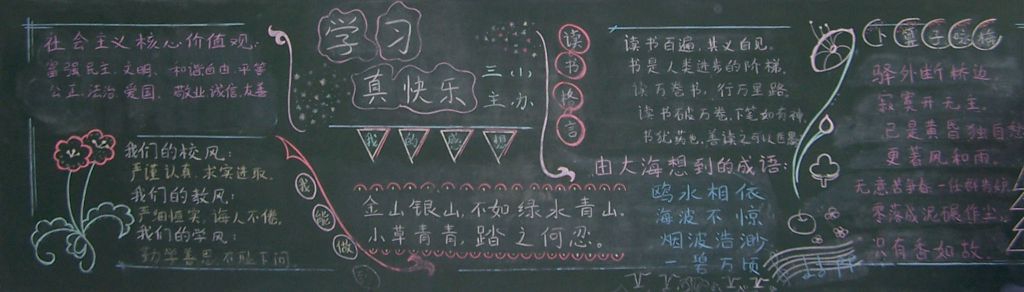 社会主义核心价值观:
富强民主 文明 和谐自由 平等
公正 法治 爱国 敬业 诚信 友善
我们的校风:
严谨认真 求实进取
我们的教风:
严细恒实 诲人不倦
我们的学风:
勤学善思 不耻下问
学习
真快乐
三(1)
主办
我的
我能做
金山银山,不如绿水青山.
小草青青,踏之何忍。
读书
言
读书百遍,其义自见。
书是人类进步的阶梯.
读万卷书,行万里路
读书破万卷,下笔如有神
书犹药也,善读之可以医愚
由大海想到的成语:
鸥水相依
海波不惊
烟波浩渺
一碧万顷
卜算子咏梅
驿外断桥边
寂寞开无主
已是黄昏独自愁
更著风和雨
无意苦争春 一任群芳妒
零落成泥碾作尘
只有香如故